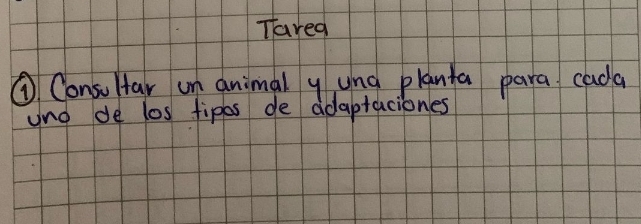 Tarea
① Consultar un animal y una planta para cada
uno de los tipos de adaptaciones